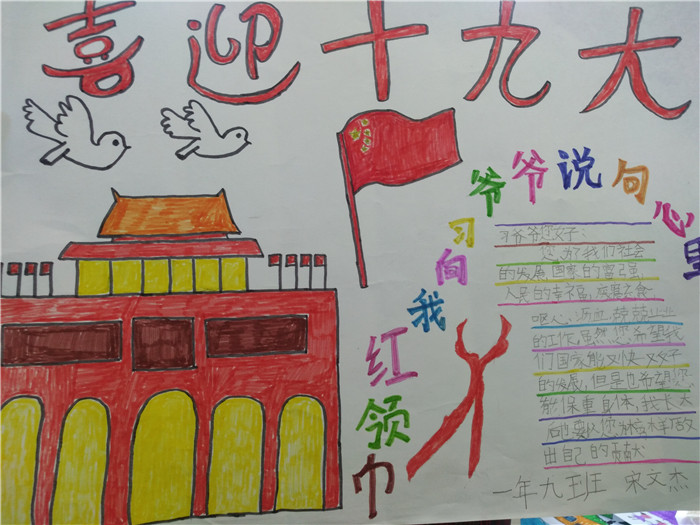 喜迎十九大
红领巾
我向习爷爷说句心里
习爷爷您好:
您为了我们社会
的发展,国家的
人民的幸福,
呕心沥血,兢兢业业
的工作,虽然您希望我
们国家能又快一又好
的发展,但是也希望你
能保重身体,我长大
后也要以您
出自己的贡献
一年九班 宋文杰